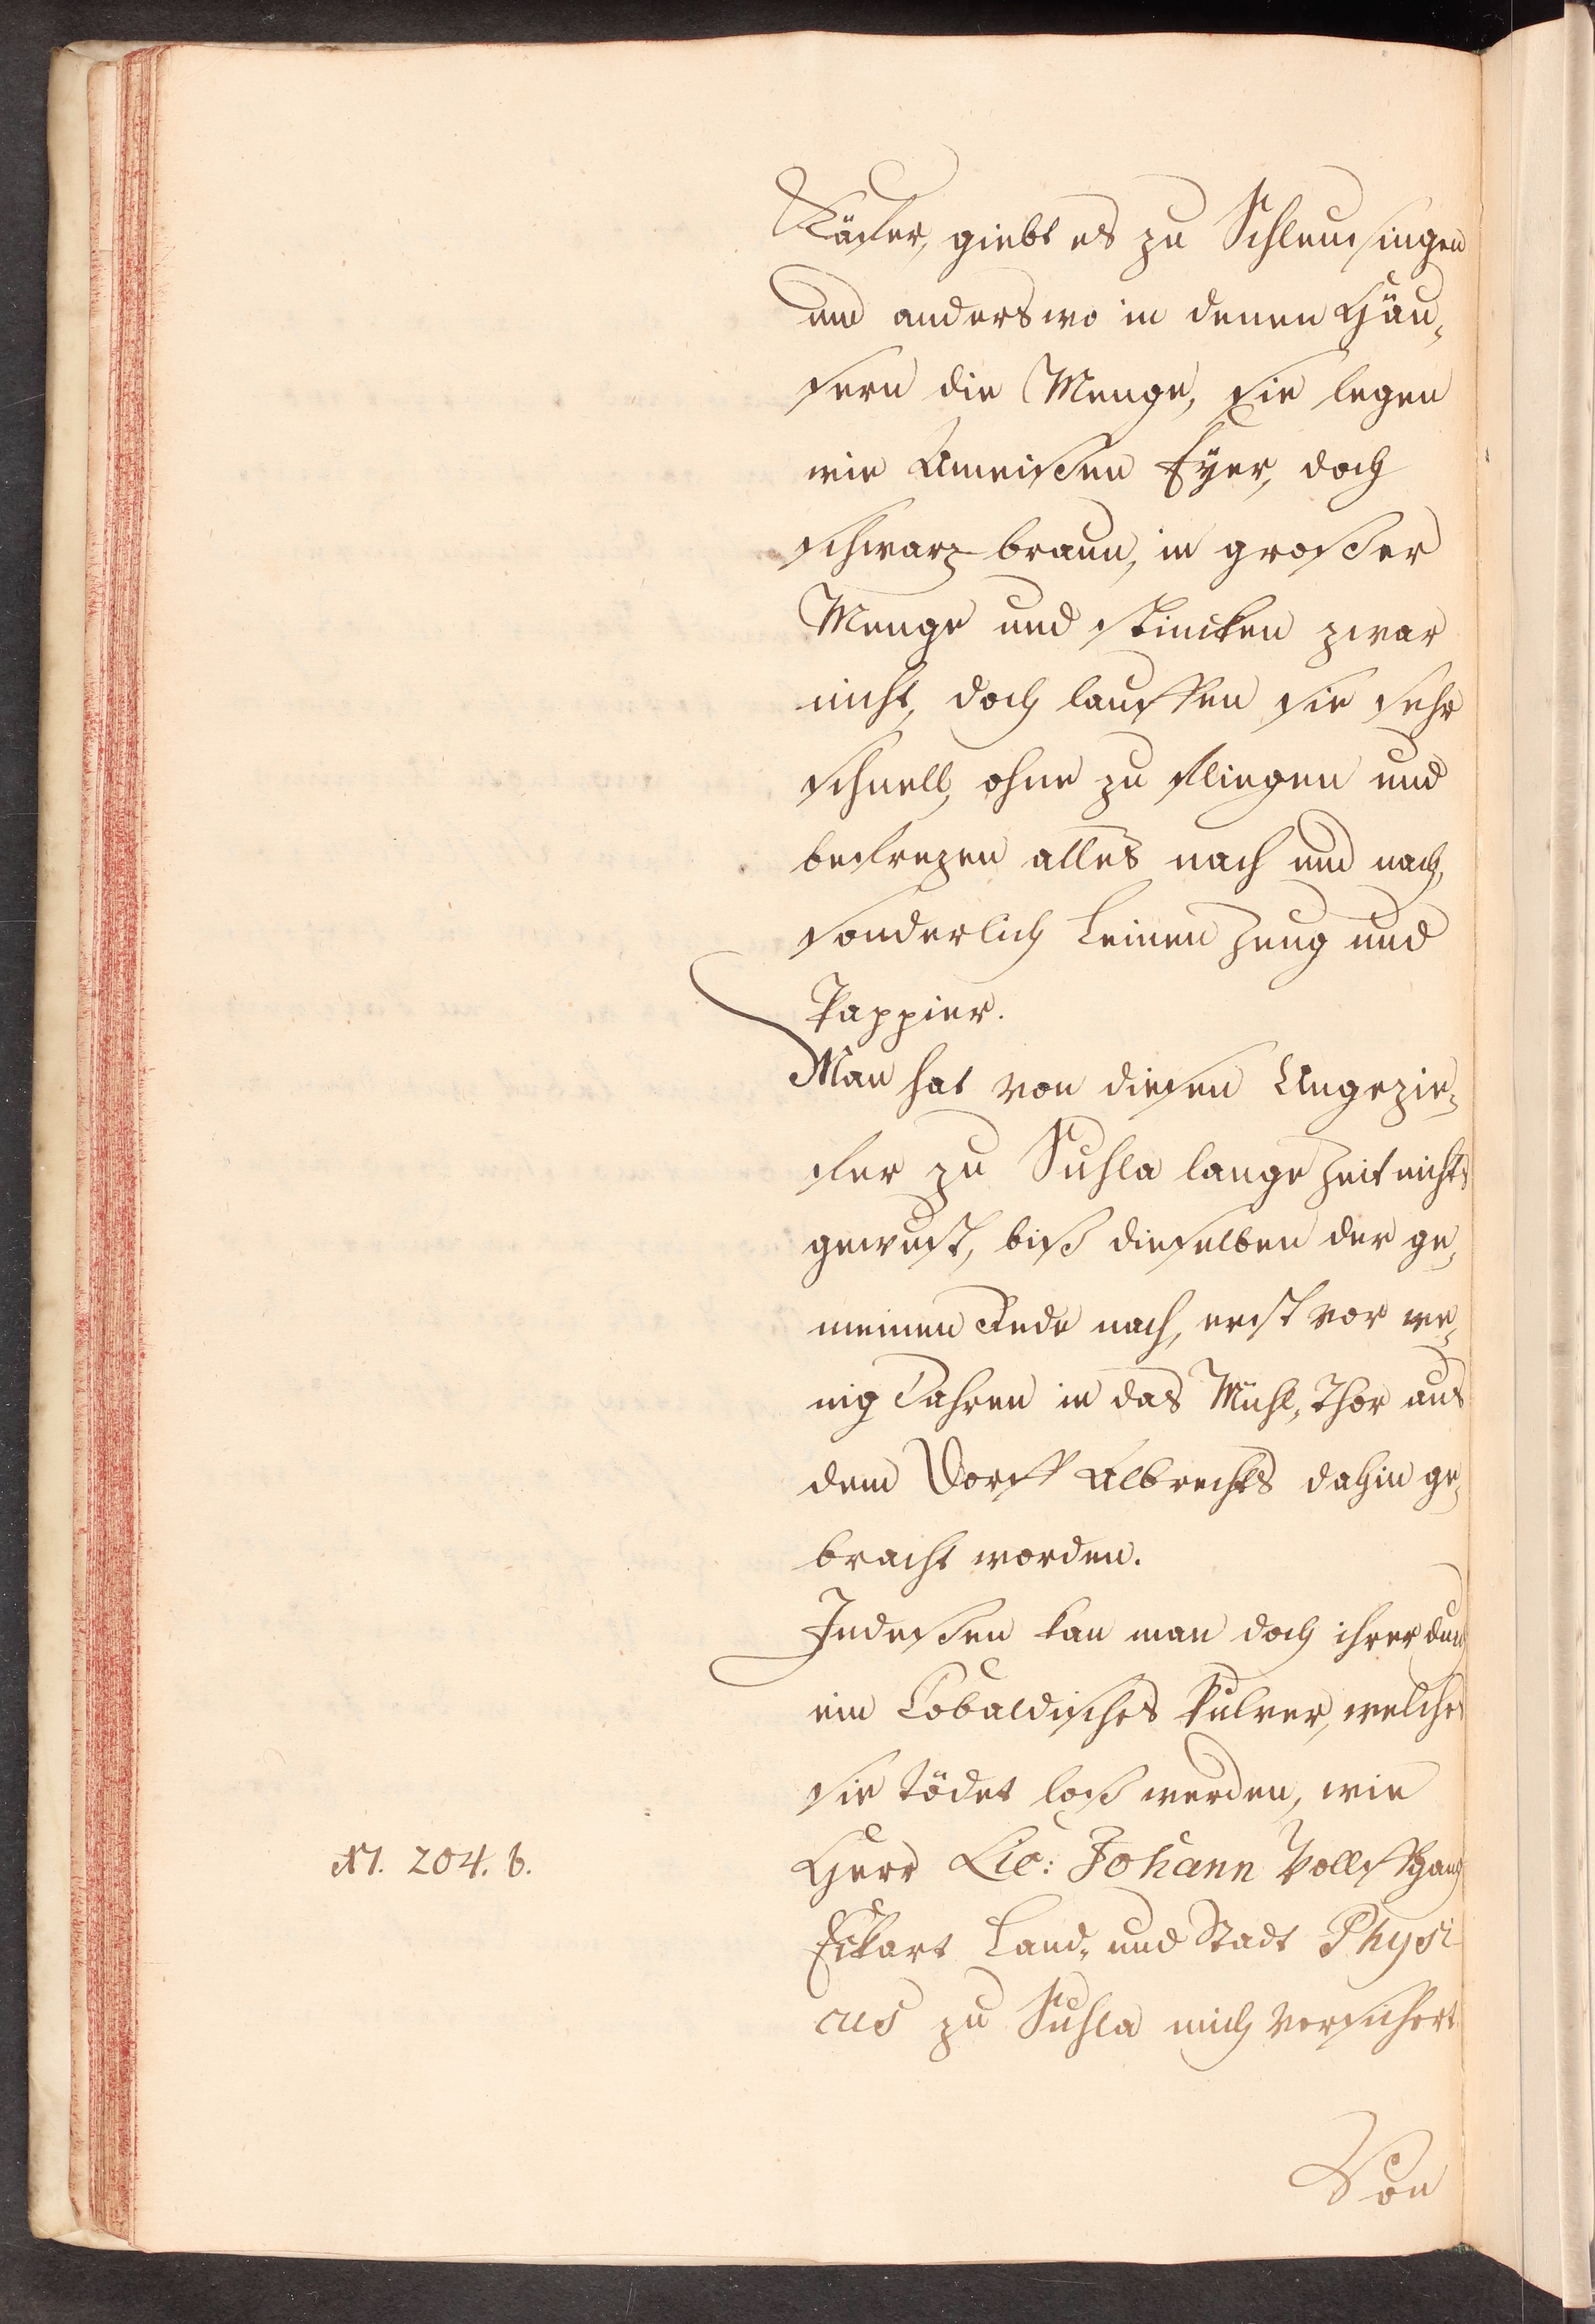 Käfer, giebt es zu Schleusingen
und anderswo in denen Häu-
sern die Menge, sie legen
wie Ameißen Eyer, doch
schwarz braun, in großer
Menge und stincken zwar
nicht, doch lauffen sie sehr
schnell, ohne zu fliegen und
befrezen alles nach und nach,
sonderlich Leinen Zeug und
Pappier.
Man hat von diesen Ungezie-
fer zu Suhla lange Zeit nichts
gewust, biß dieselben der ge-
meinen Rede nach, erst vor we-
nig Jahren in das Mühl-Thor aus
dem Dorff Albrechts dahin ge-
bracht worden.
Indeßen kan man doch ihrer durch
ein Cobaldisches Pulver, welches
sie tödet loß werden, wie
N. 204. b.
Herr Lic: Johann Wolffgang
Eckart Land- und Stadt Physi
cus zu Suhla mich versichert
Von